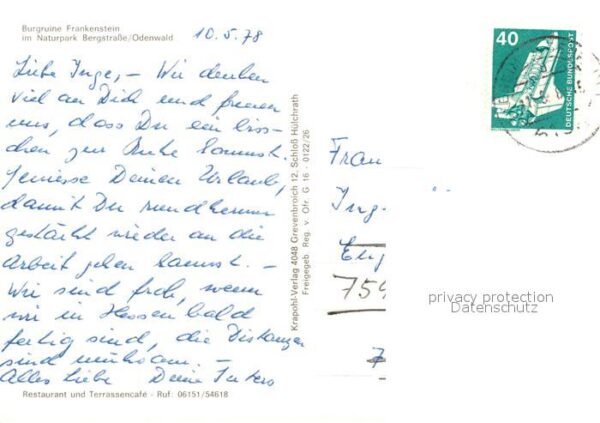 Burgruine Frankenstein
im Naturpark Bergstraße/Odenwald
10.5.78
Liebe Inge, – Wir denken
viel an Dich und freuen
uns, dass Du ein biss-
chen zur Ruhe kommst.
Geniesse Deinen Urlaub,
damit Du rundherum
gestärkt wieder an die
Arbeit gehen kannst. –
Wir sind froh, wenn
wir in Hessen bald
fertig sind, die Distanzen
sind mühsam. –
Alles Liebe Deine
Restaurant und Terrassencafé - Ruf: 06151/54618
Krapohl-Verlag 4048 Grevenbroich 12, Schloß Hülchrath
Freigegeb. Reg. v. Obf. G 16 0122/26
40
DEUTSCHE BUNDESPOST
Frau
Ing
759
7
privacy protection
Datenschutz